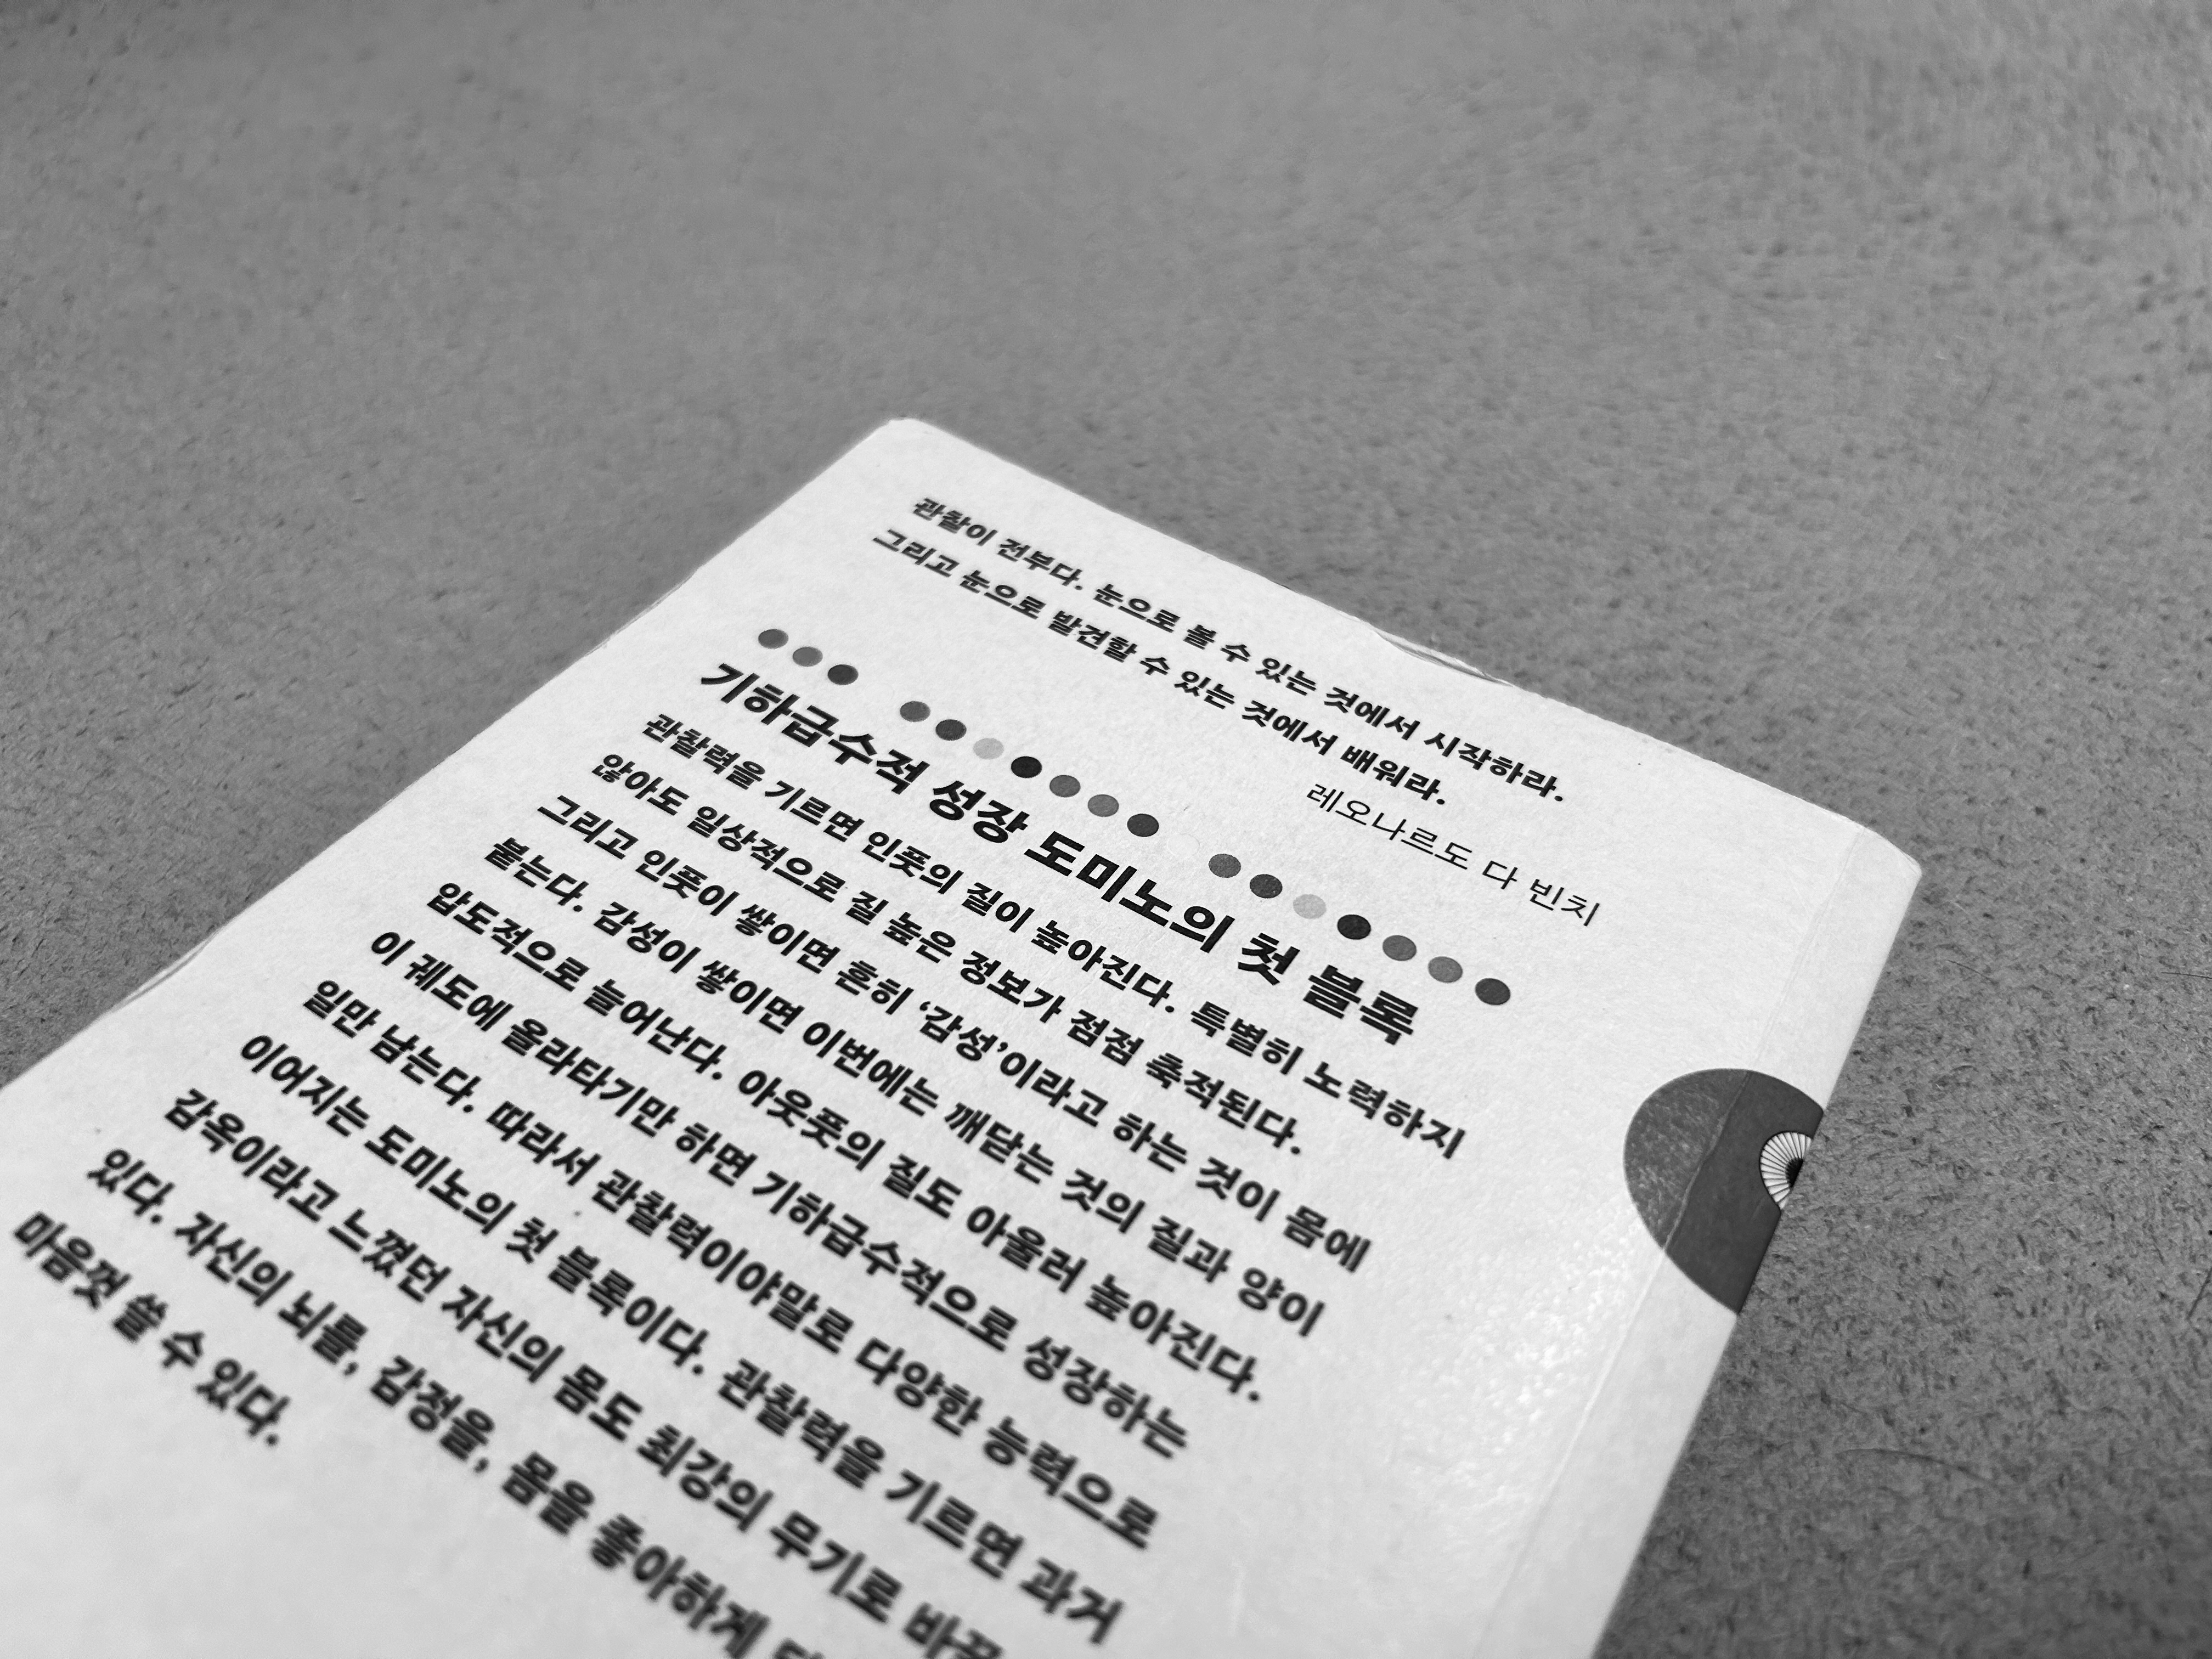 관찰이 전부다. 눈으로 볼 수 있는 것에서 시작하라.
그리고 눈으로 발견할 수 있는 것에서 배워라.
레오나르도 다 빈치
기하급수적 성장 도미노의 첫 블록
관찰력을 기르면 인풋의 질이 높아진다. 특별히 노력하지
않아도 일상적으로 질 높은 정보가 점점 축적된다.
그리고 인풋이 쌓이면 흔히 ‘감성’이라고 하는 것이 몸에
붙는다. 감성이 쌓이면 이번에는 깨닫는 것의 질과 양이
압도적으로 늘어난다. 아웃풋의 질도 아울러 높아진다.
이 궤도에 올라타기만 하면 기하급수적으로 성장하는
일만 남는다. 따라서 관찰력이야말로 다양한 능력으로
이어지는 도미노의 첫 블록이다. 관찰력을 기르면 과거
감옥이라고 느꼈던 자신의 몸도 최강의 무기로
있다. 자신의 뇌를, 감정을, 몸을 좋아하게
마음껏 쓸 수 있다.